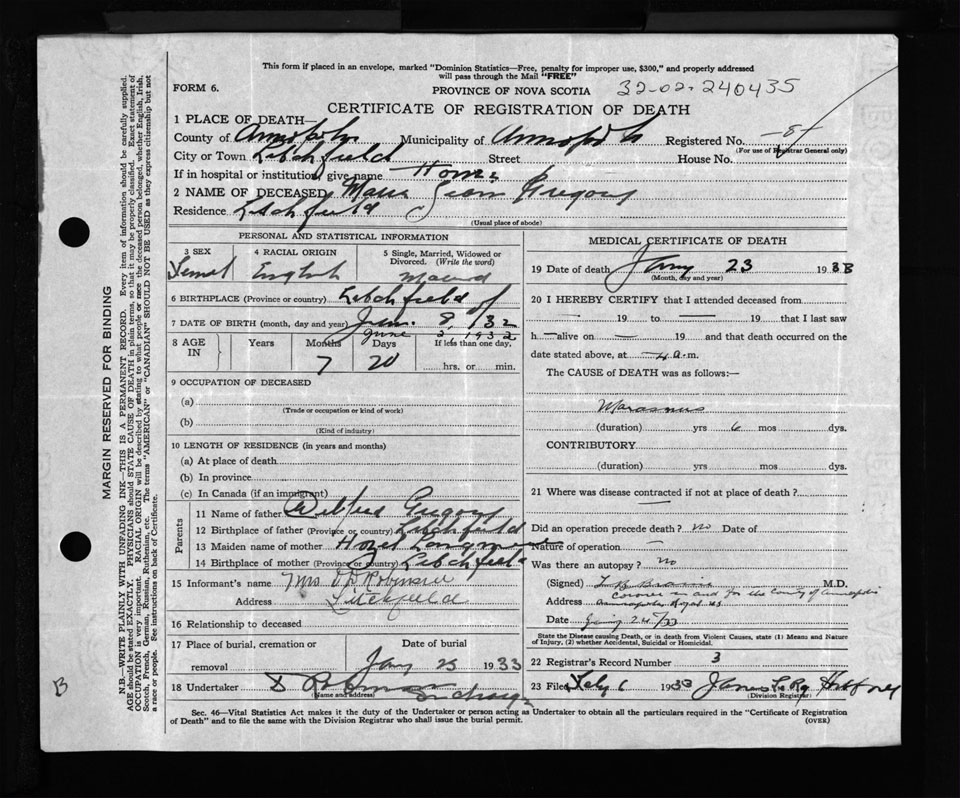 This form if placed in an envelope, marked "Dominion Statistics—Free, penalty for improper use, $300," and properly addressed
will pass through the Mail "FREE"
FORM 6.
PROVINCE OF NOVA SCOTIA
32-02-240435
CERTIFICATE OF REGISTRATION OF DEATH
1 PLACE OF DEATH—
County of Annapolis Municipality of Annapolis Registered No. —8
(For use of Registrar General only)
City or Town Litchfield Street House No.
If in hospital or institution, give name Home
2 NAME OF DECEASED Jean Gregory
Residence Litchfield
(Usual place of abode)
PERSONAL AND STATISTICAL INFORMATION
3 SEX 4 RACIAL ORIGIN 5 Single, Married, Widowed or
Divorced. (Write the word)
Femal English
6 BIRTHPLACE (Province or country) Litchfield
7 DATE OF BIRTH (month, day and year) 8, /32
June 3, 1932
8 AGE IN Years Months Days If less than one day,
7 20 hrs. or min.
9 OCCUPATION OF DECEASED
(a)
(Trade or occupation or kind of work)
(b)
(Kind of industry)
10 LENGTH OF RESIDENCE (in years and months)
(a) At place of death
(b) In province
(c) In Canada (if an immigrant)
Parents
11 Name of father Wilfred Gregory
12 Birthplace of father (Province or country) Litchfield
13 Maiden name of mother Hazel Longmire
14 Birthplace of mother (Province or country) Litchfield
15 Informant's name Mrs V D Robinson
Address Litchfield
16 Relationship to deceased
17 Place of burial, cremation or
removal
Date of burial
Jany 25 1933
18 Undertaker D Robinson
(Name and address)
MEDICAL CERTIFICATE OF DEATH
19 Date of death Jany 23 1933
(Month, day and year)
20 I HEREBY CERTIFY that I attended deceased from
— 19 to — 19 that I last saw
h—alive on — 19 and that death occurred on the
date stated above, at —4 a.m.
The CAUSE of DEATH was as follows:—
Marasmus
(duration) yrs 6 mos dys.
CONTRIBUTORY
(duration) yrs mos dys.
21 Where was disease contracted if not at place of death?
Did an operation precede death? no Date of
Nature of operation —
Was there an autopsy? no
(Signed) L B Braine M.D.
Coroner in and for the County of Annapolis
Address Annapolis Royal NS
Date Jany 24/33
State the Disease causing Death, or in death from Violent Causes, state (1) Means and Nature
of Injury, (2) whether Accidental, Suicidal or Homicidal.
22 Registrar's Record Number 3
23 Filed Feby 6 1933
(Division Registrar)
Sec. 46—Vital Statistics Act makes it the duty of the Undertaker or person acting as Undertaker to obtain all the particulars required in the "Certificate of Registration
of Death" and to file the same with the Division Registrar who shall issue the burial permit.
(OVER)
MARGIN RESERVED FOR BINDING
N.B.—WRITE PLAINLY WITH UNFADING INK—THIS IS A PERMANENT RECORD. Every item of information should be carefully supplied.
AGE should be stated EXACTLY. PHYSICIANS should STATE CAUSE OF DEATH in plain terms, so that it may be properly classified. Exact statement of
OCCUPATION is very important. RACIAL ORIGIN will be described by stating to what people or race the deceased person belonged, whether English, Irish,
Scotch, French, German, Russian, Ruthenian, etc. The terms "AMERICAN" or "CANADIAN" SHOULD NOT BE USED as they express citizenship but not
a race or people. See instructions on back of Certificate.
B